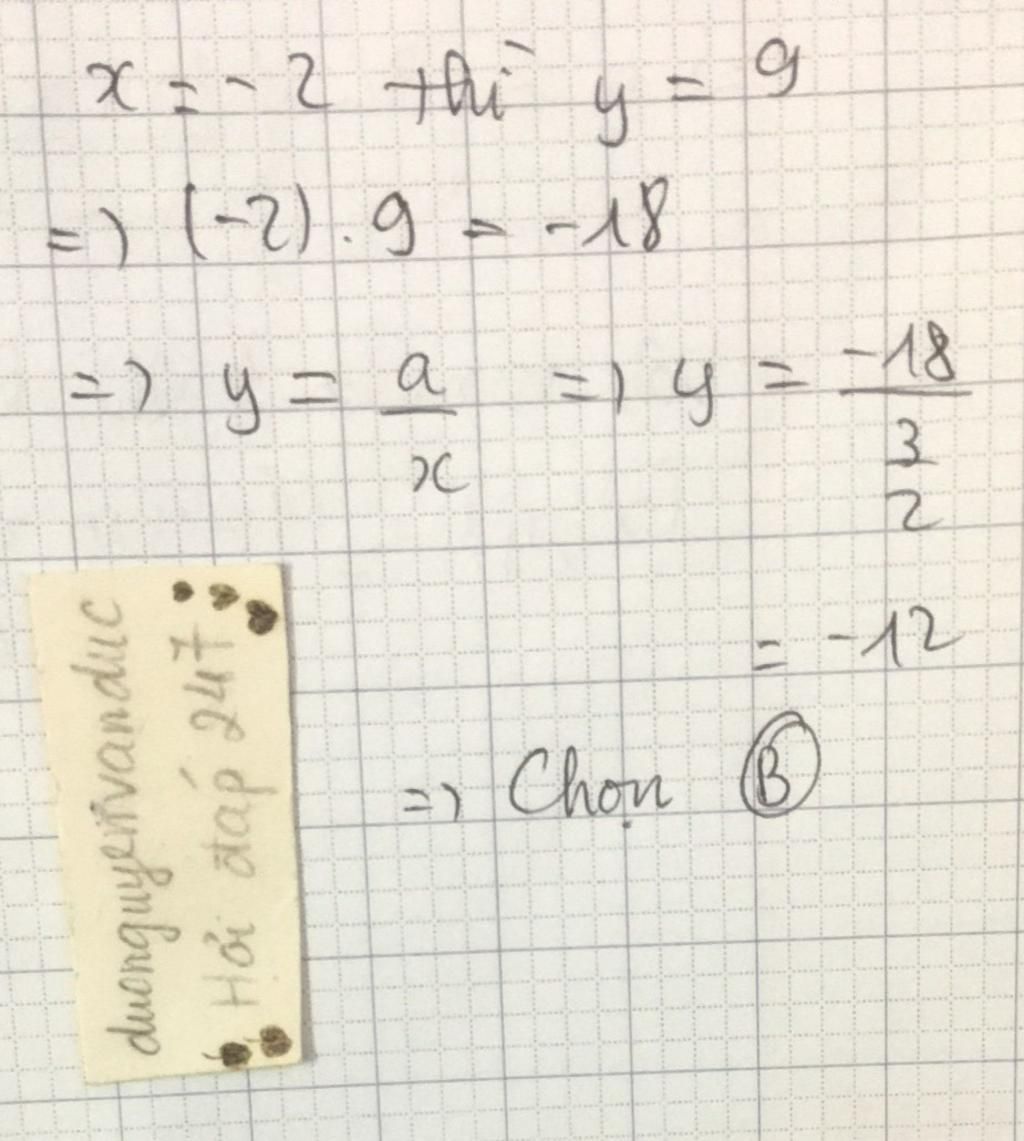 x = -2 thì y = 9
=> (-2) . 9 = -18
=> y = a/x => y = -18/(3/2)
= -12
=> Chọn B
duongnguyenvanduc
Hỏi đáp 247